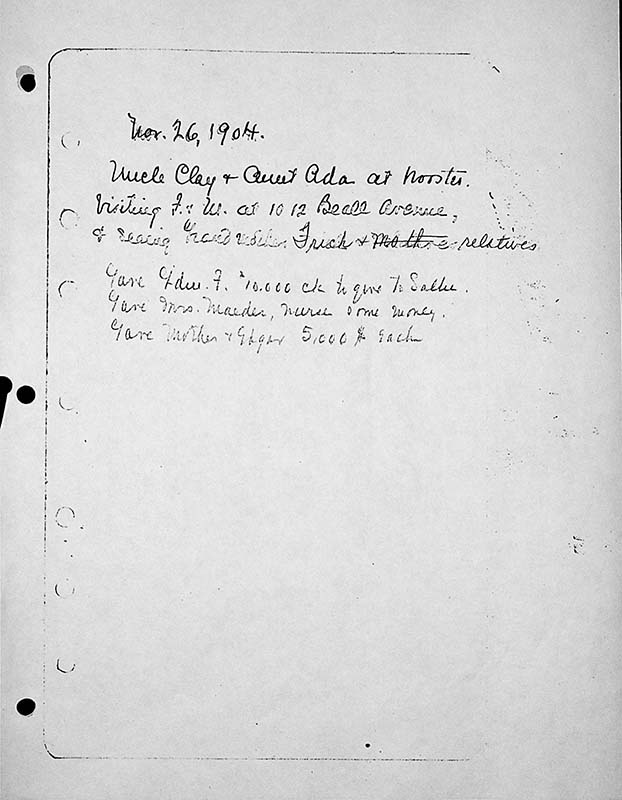 Nov. 26, 1904.
Uncle Clay & Aunt Ada at Wooster.
Visiting F. & M. at 1012 Beall Avenue,
& seeing Grandmother Frick & relatives
Gave Edw. F. $10.000 ck to give to Sallie.
Gave Mrs. Maeder, nurse some money.
Gave Mother & Edgar 5,000 $ each